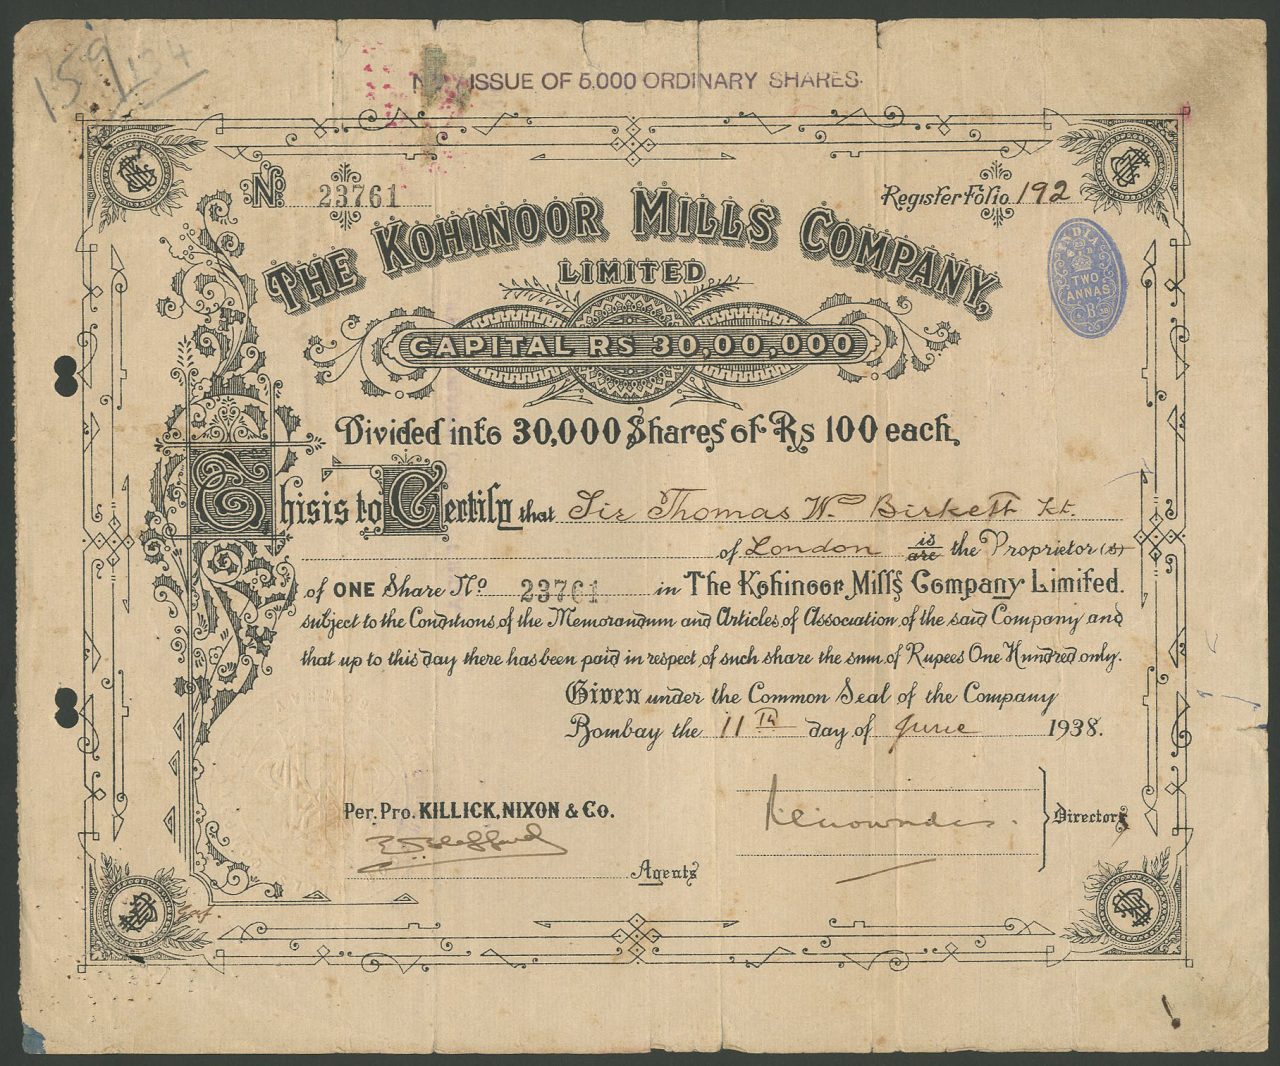 159/134
NEW ISSUE OF 5,000 ORDINARY SHARES.
No. 23761
Register Folio 192
THE KOHINOOR MILLS COMPANY,
LIMITED
INDIA
TWO
ANNAS
B
CAPITAL RS 30,00,000
Divided into 30,000 Shares of Rs 100 each,
This is to Certify that Sir Thomas Wm Birkett Kt.
of London is/are the Proprietor(s)
of ONE Share No. 23761 in The Kohinoor Mills Company Limited.
subject to the Conditions of the Memorandum and Articles of Association of the said Company and
that up to this day there has been paid in respect of such share the sum of Rupees One Hundred only.
Given under the Common Seal of the Company
Bombay the 11th day of June 1938.
Per. Pro. KILLICK, NIXON & Co.
Directors
Agents